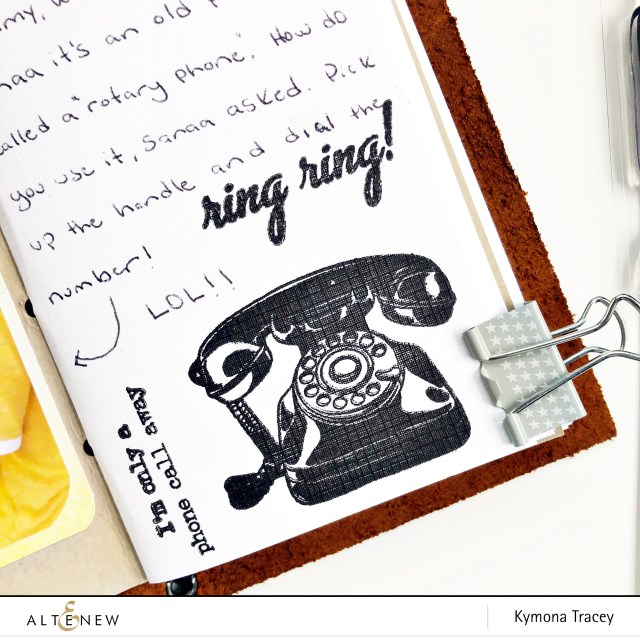 it's an old
called a "rotary phone". How do
you use it, Sanaa asked. Pick
up the handle and dial the
number!
LOL!!
ring ring!
I'm only a
phone call away
ALTENEW
Kymona Tracey